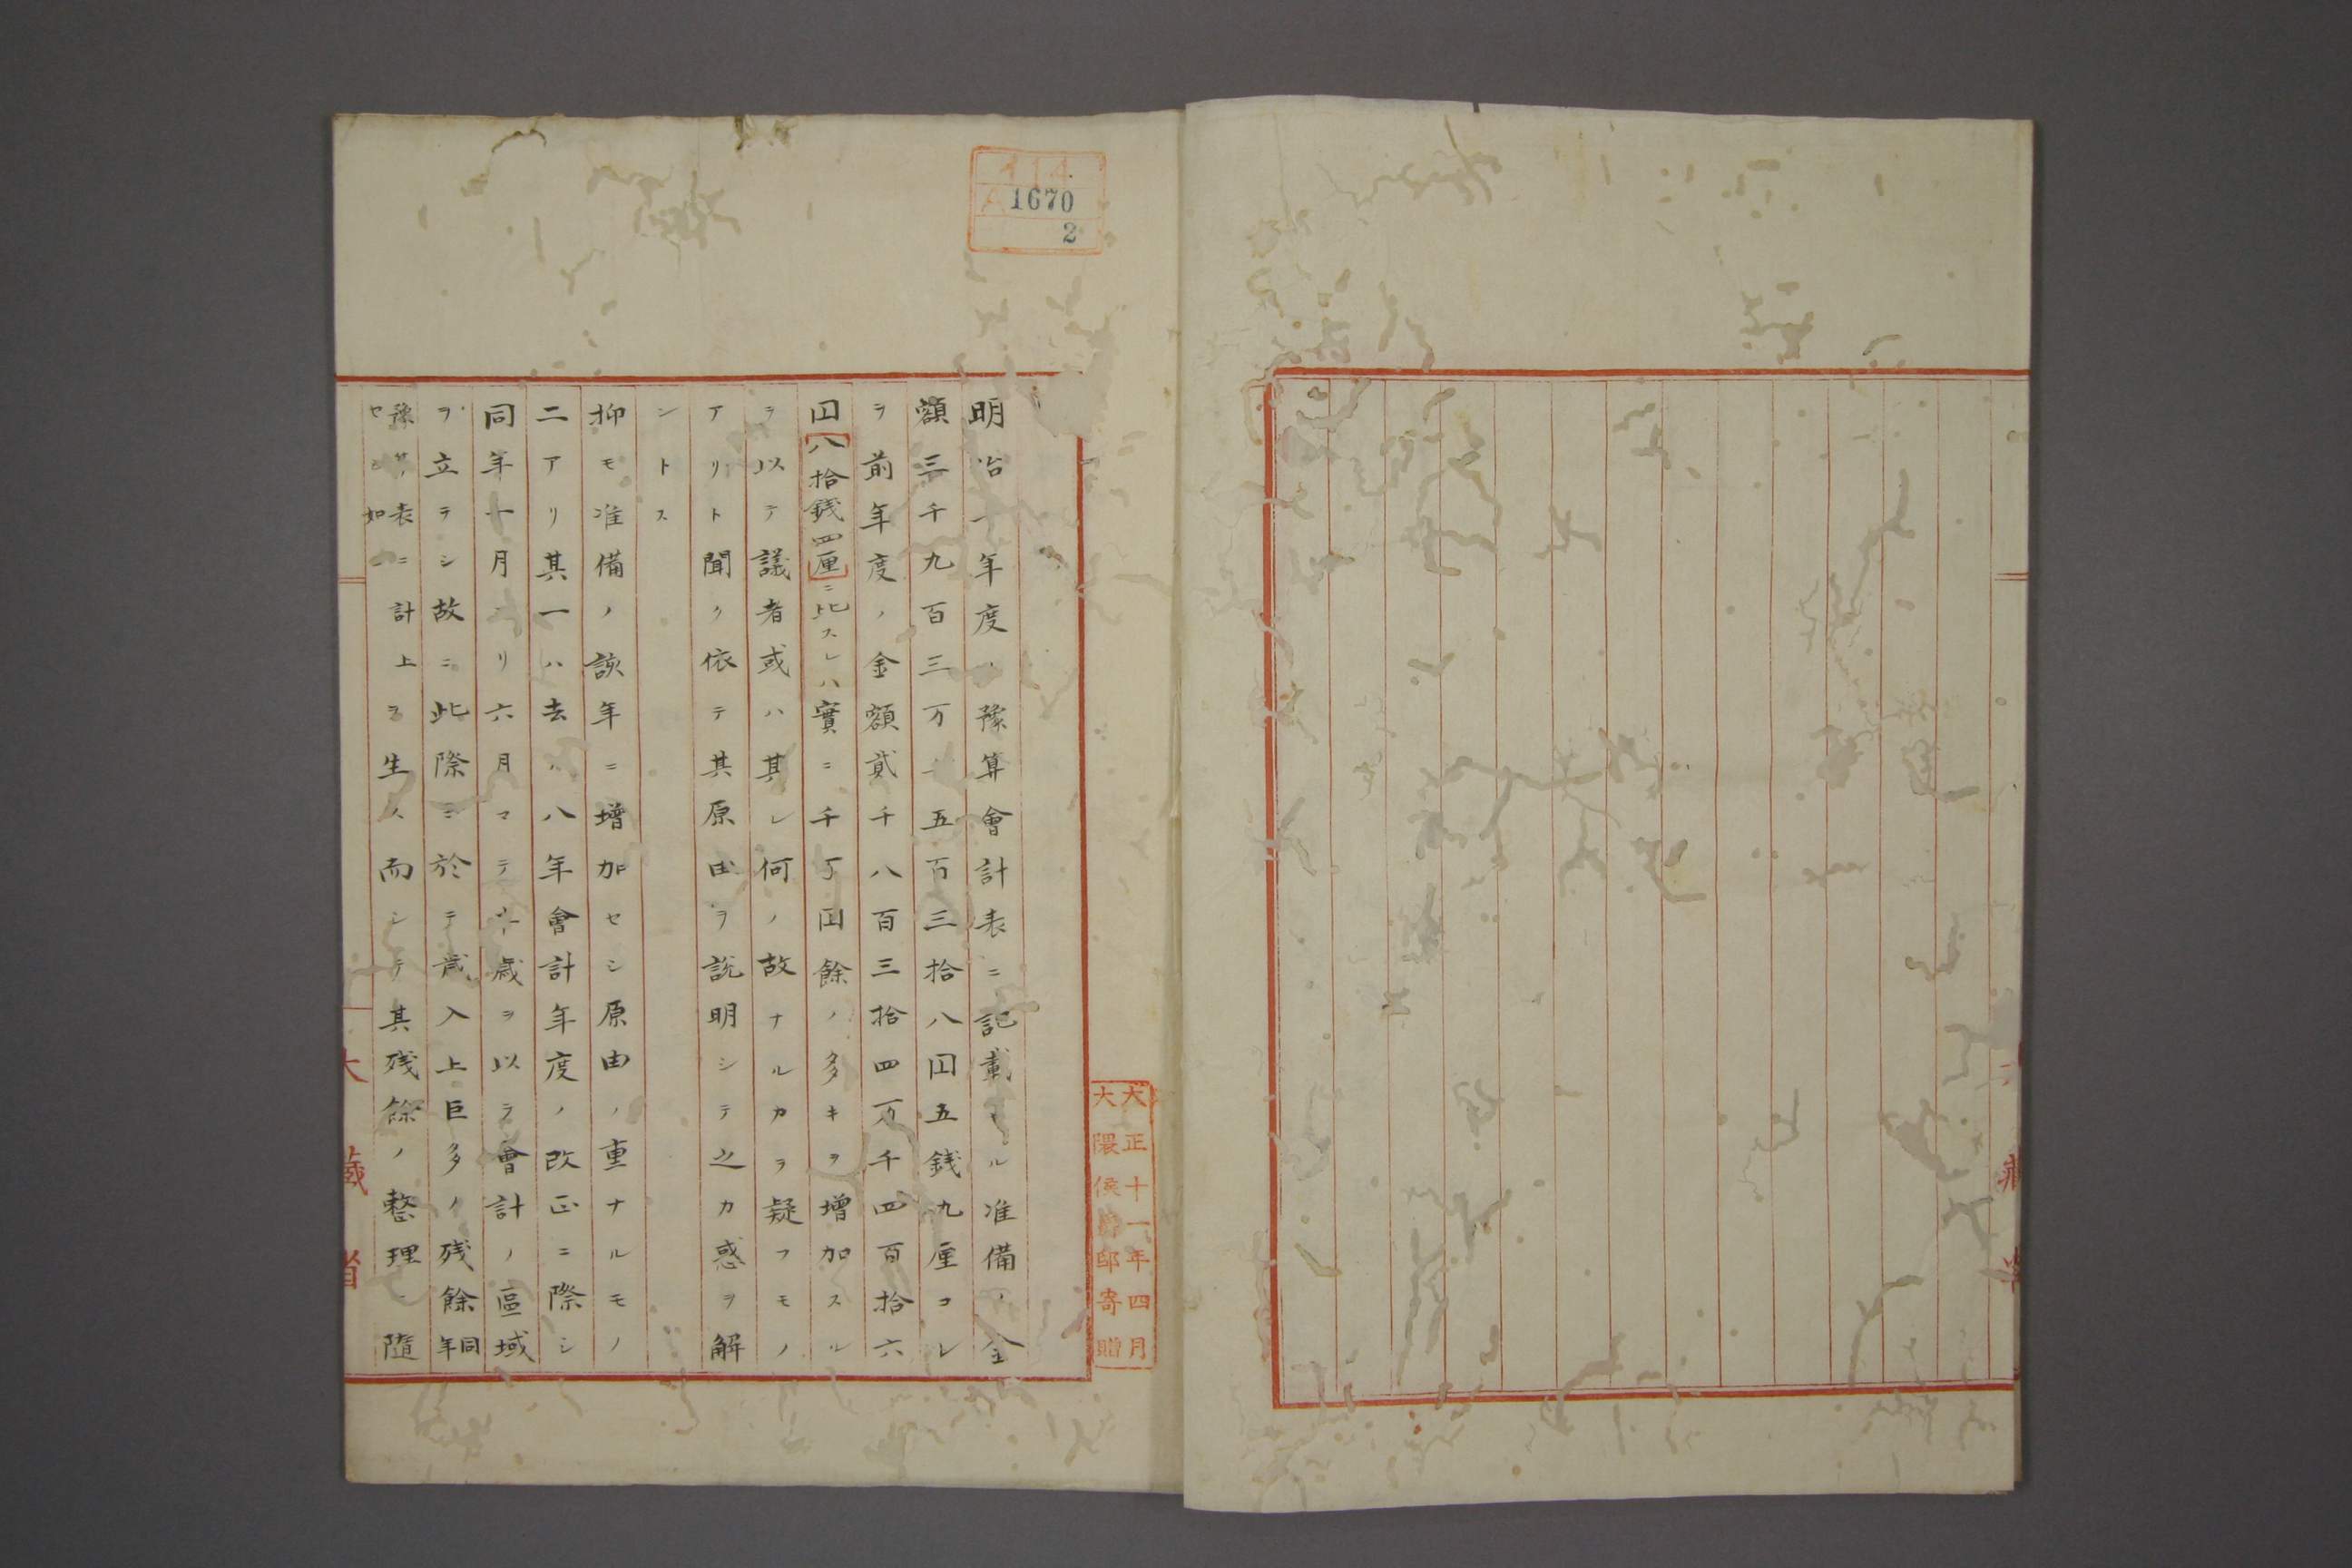 1670
2
大正十一年四月
大隈侯爵邸寄贈
明治十年度ノ豫算會計表ニ記載セル准備ノ金
額三千九百三万 五百三拾八囗五銭九厘コレ
ヲ前年度ノ金額貳千八百三拾四万千四百拾六
囗八拾銭四厘ニ比スレハ實ニ千万囗餘ノ多キヲ增加スル
ヲ以テ議者或ハ其レ何ノ故ナルカヲ疑フモノ
アリト聞ク依テ其原由ヲ説明シテ之カ惑ヲ解
ントス
抑モ准備ノ該年ニ增加セシ原由ノ重ナルモノ
二アリ其一ハ去ル八年會計年度ノ改正ニ際シ
同年一月ヨリ六月マテ半歳ヲ以テ會計ノ區域
ヲ立テシ故ニ此際ニ於テ歳入上巨多ノ残餘同年
豫算表ニ計上セシ如 ヲ生ス而シテ其残餘ノ整理 隨
大藏省